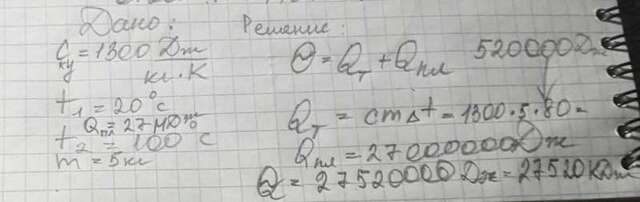 Дано:
C = 1300 Дж
ку кг·К
t₁ = 20°c
Qпл = 27 МДж
t₂ = 100°C
m = 5кг
Решение:
Q = Qт + Qпл 520000Дж
Qт = cm∆t = 1300·5·80 =
Qпл = 27000000Дж
Q = 27520000Дж = 27520КДж